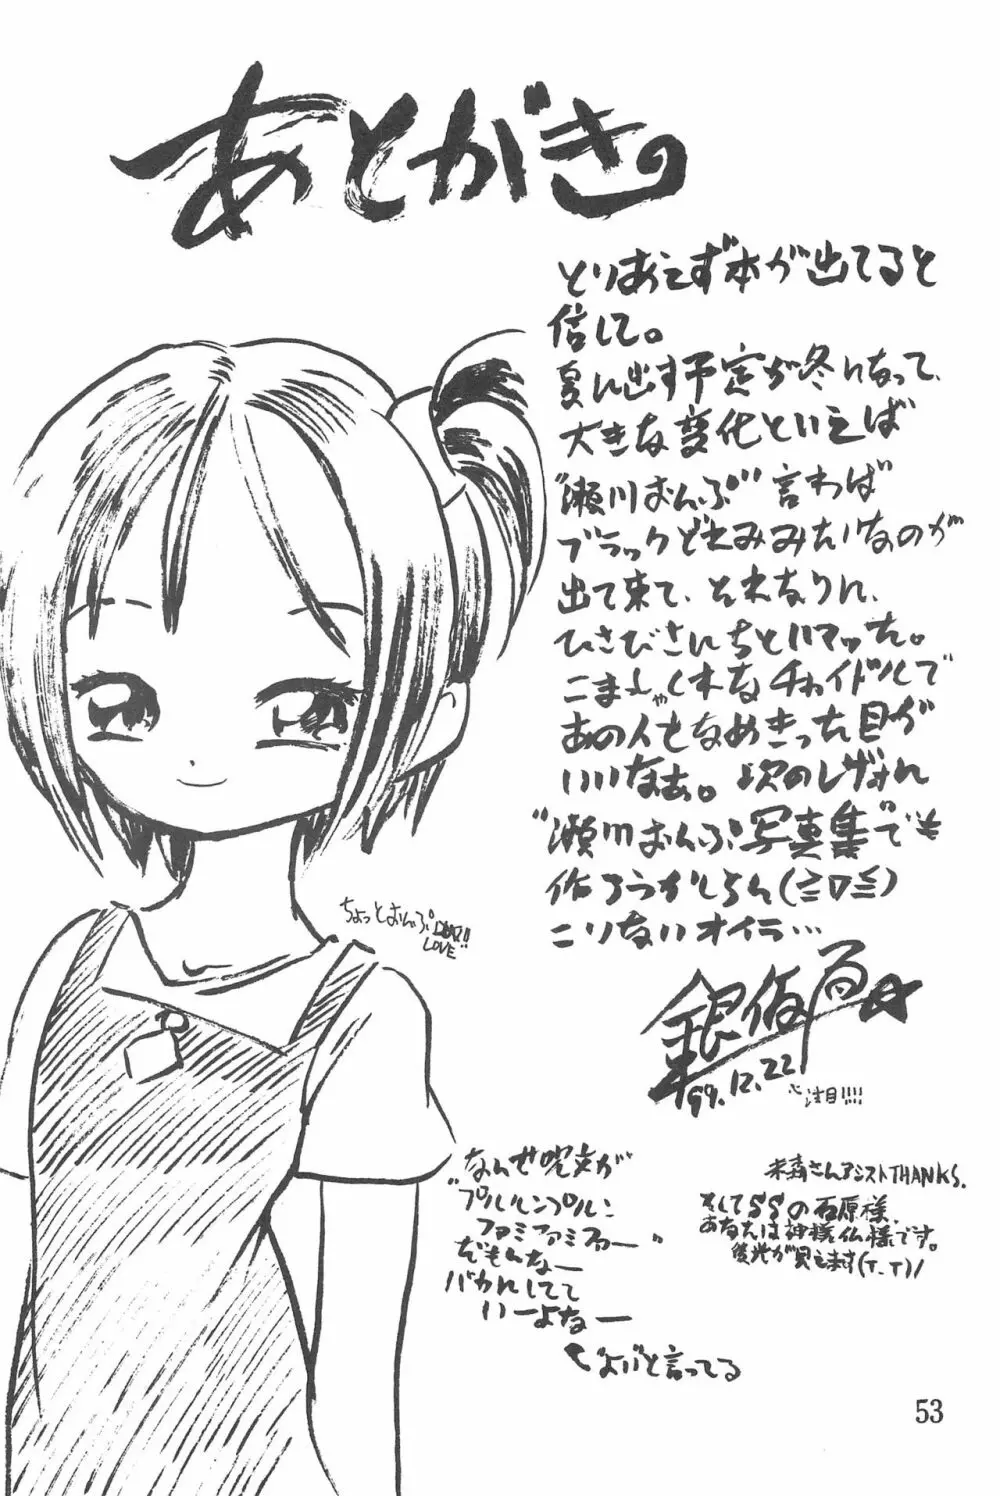 あとがき。
とりあえず本が出てると
信じて。
夏に出す予定が冬になって、
大きな変化といえば
"瀬川おんぷ"言わば
ブラックどれみみたいなのが
出て来て、それなりに、
ひさびさにちとハマッた。
こましゃくれなチャイドルで
あの人を
なめきった目が
いいなぁ。次のレヴォに
"瀬川おんぷ写真集"でも
作ろうかしらん(≧▽≦)
こりないオイラ…
ちょっとおんぷ
LOVE!!
'99.12.22
注目!!!!
なんせ呪文が
"プルルンプルン
ファミファミファー"
だもんなー
バカにしてて
いーよなー
と言ってる
米森さんアシストTHANKS.
そしてSSの石原様
あなたは神様仏様です。
後光が見えます(T_T)/
53